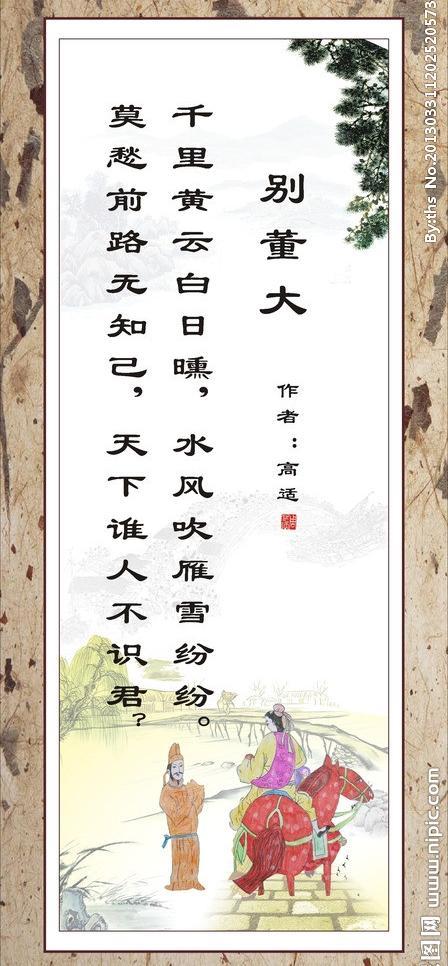 别董大
作者：高适
千里黄云白日曛，水风吹雁雪纷纷。
莫愁前路无知己，天下谁人不识君？
By:ths No.20130331120252520573
图网 www.nipic.com